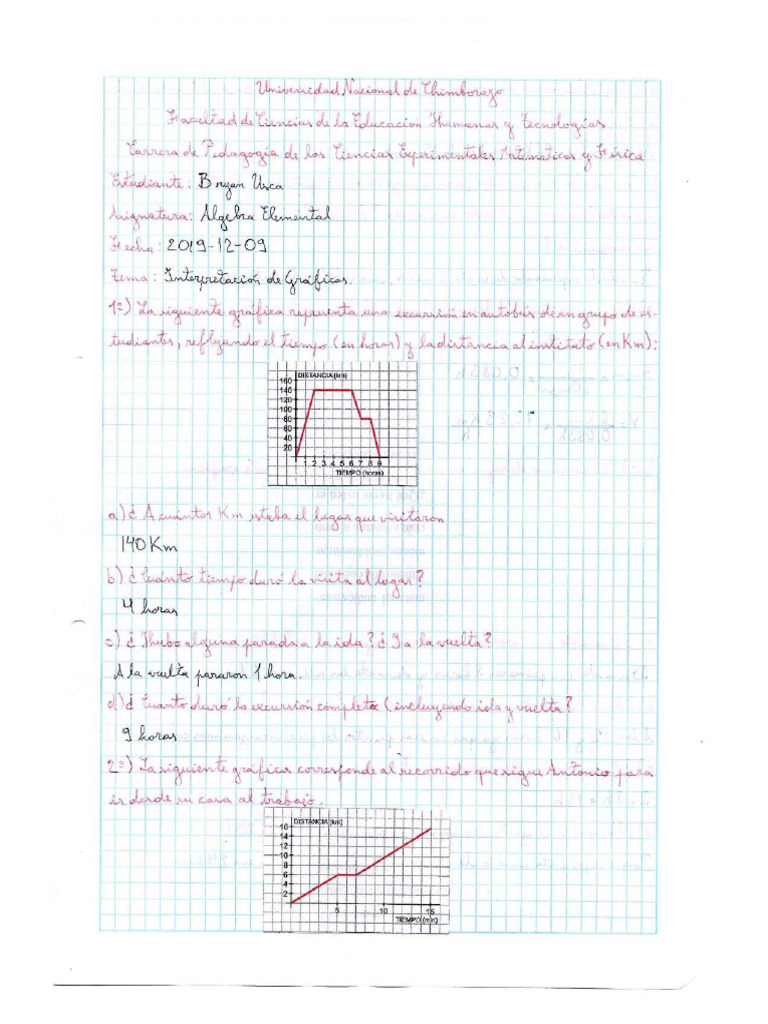 Universidad Nacional de Chimborazo
Facultad de Ciencias de la Educacion Humanas y tecnologías
Carrera de Pedagogía de las Ciencias Experimentales Matematicas y Física
Estudiante: Bryan Usca
Asignatura: Algebra Elemental
Fecha: 2019-12-09
Tema: Interpretación de Gráficas.
1º) La siguiente gráfica representa una excursión en autobús de un grupo de es-
tudiantes, reflejando el tiempo (en horas) y la distancia al instituto (en Km):
DISTANCIA (km)
160
140
120
100
80
60
40
20
1 2 3 4 5 6 7 8 9
TIEMPO (horas)
a) ¿A cuántos Km estaba el lugar que visitaron
140 Km
b) ¿Cuánto tiempo duró la visita al lugar?
4 horas
c) ¿Hubo alguna parada a la ida? ¿Y a la vuelta?
A la vuelta pararon 1 hora.
d) ¿Cuanto duró la excursión completa (incluyendo ida y vuelta?
9 horas
2º) La siguiente gráfica corresponde al recorrido que sigue Antonio para
ir desde su casa al trabajo.
DISTANCIA (km)
16
14
12
10
8
6
4
2
5 10 15
TIEMPO (min)